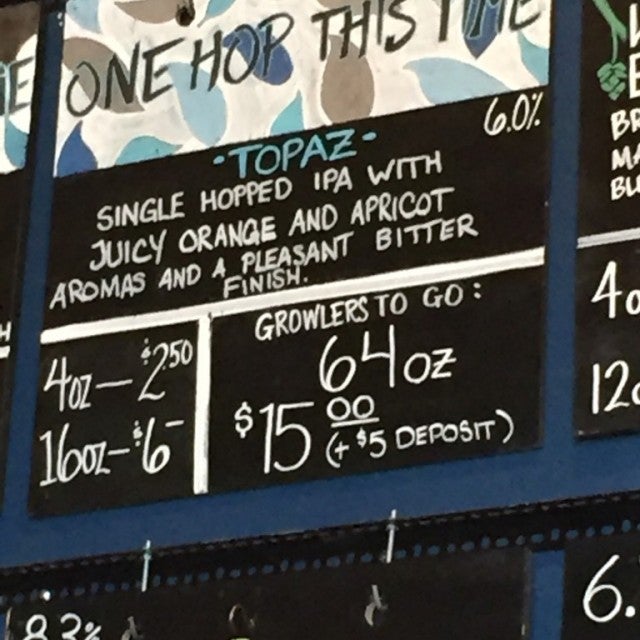 ONE HOP THIS TIME
6.0%
·TOPAZ·
SINGLE HOPPED IPA WITH
JUICY ORANGE AND APRICOT
AROMAS AND A PLEASANT BITTER
FINISH.
4OZ — $2.50
16OZ - $6-
GROWLERS TO GO:
64 OZ
$15 00 (+ $5 DEPOSIT)
8.3%
6.